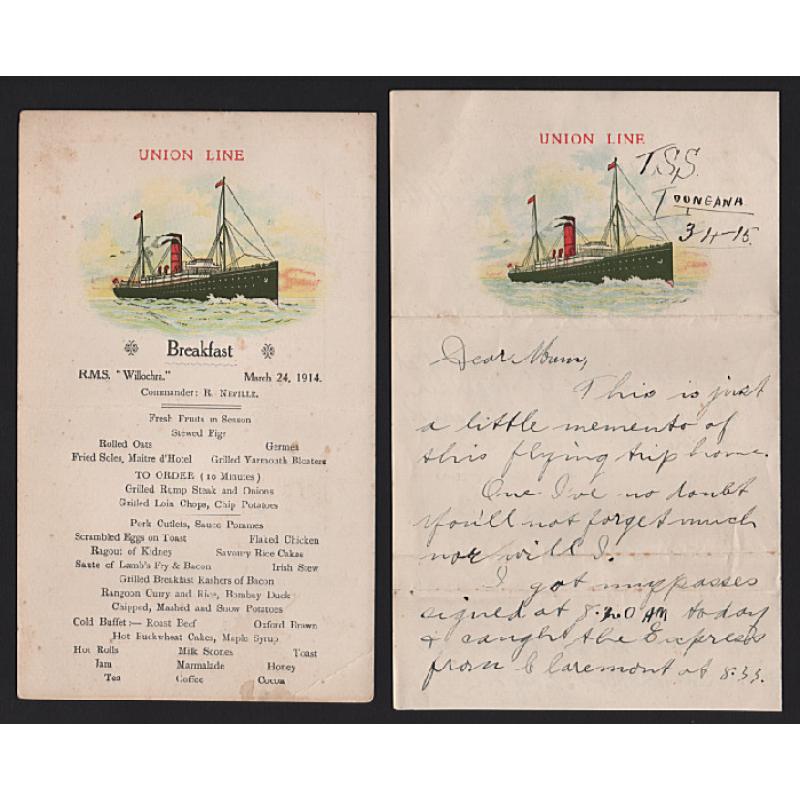 UNION LINE
Breakfast
R.M.S. "Willochra." March 24, 1914.
Commander: R. Neville.
Fresh Fruits in Season
Stewed Figs
Rolled Oats Germea
Fried Soles, Maitre d'Hotel Grilled Yarmouth Bloaters
TO ORDER (10 Minutes)
Grilled Rump Steak and Onions
Grilled Loin Chops, Chip Potatoes
Pork Cutlets, Sauce Pommes
Scrambled Eggs on Toast Flaked Chicken
Ragout of Kidney Savoury Rice Cakes
Saute of Lamb's Fry & Bacon Irish Stew
Grilled Breakfast Rashers of Bacon
Rangoon Curry and Rice, Bombay Duck
Chipped, Mashed and Snow Potatoes
Cold Buffet:— Roast Beef Oxford Brawn
Hot Buckwheat Cakes, Maple Syrup
Hot Rolls Milk Scones Toast
Jam Marmalade Honey
Tea Coffee Cocoa
UNION LINE
T.S.S.
LOONGANA
3-4-15.
Dear Mum,
This is just
a little memento of
this flying trip home.
One I've no doubt
you'll not forget much
nor will I.
I got my passes
signed at 8.20 AM today
& caught the Express
from Claremont at 8.33.